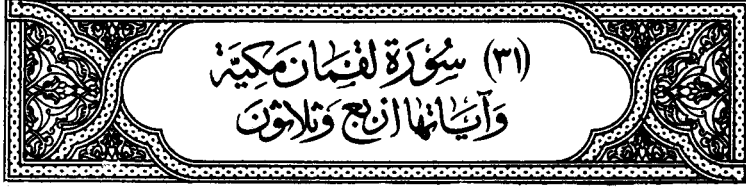 (٣١) سُورَة لقمَان مَكيَّة
وَآيَاتهَا أربَع وَثلاثونَ